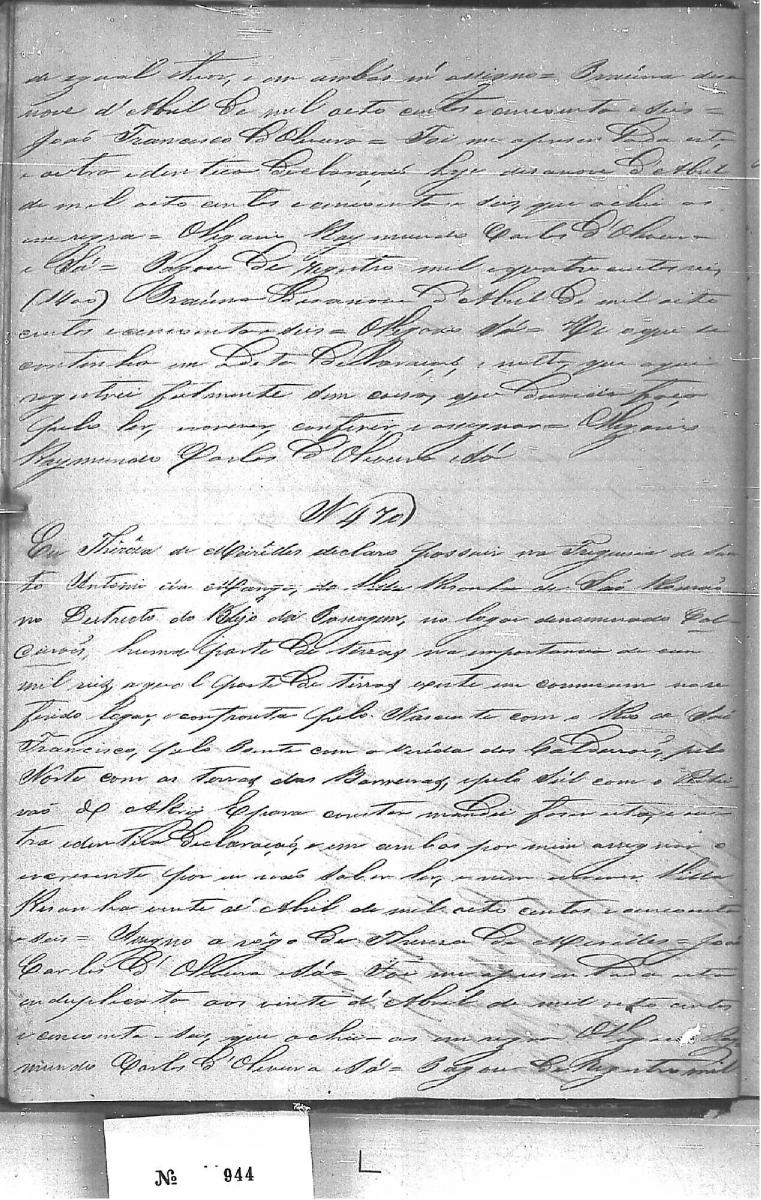 de egual theor, e em ambas m'assigno = Braúna desa
nove d'Abril de mil oito centos e cincoenta e seis =
João Francisco d'Oliveira = Foi me apresentada esta,
e outra identica declaração hoje desanove d'Abril
de mil oito centos e cincoenta e seis, que achei as
em regra = O Vigario Raymundo Carlos d'Oliveira
e Sá = Pagou de registro mil e quatro centos reis
(1400) Braúna desanove d'Abril de mil oito
centos e cincoenta e seis = O Vigario Sá = He o que se
continha em dita declaração, e nota, que aqui
registrei fielmente sem cousa, que duvida faça
pelo ler, escrever, conferir, e assignar = O Vigario
Raymundo Carlos d'Oliveira e Sá
N 470)
Eu Thereza de Meirélles declaro possuir na Freguesia de San
to Antonio da Manga, da Villa Risonha de São Romão
no Destricto do Brejo da Passagem, no logar denominado Cal
deirões, huma parte de terras na importancia de cem
mil reis, a qual parte de terras existe em commum no re
ferido logar, e confronta pelo Nascente com o Rio de São
Francisco, pelo Poente com a veréda dos Caldeirões, pelo
Norte com as terras das Barreiras, e pelo Sul com o Ribei
rão de E para constar mandei fazer esta, e ou
tra identica declaração, e em ambas por mim assignou o
escrevente por eu não saber ler, e nem escrever Villa
Risonha vinte d'Abril de mil oito centos e cincoenta
e seis = Assigno a rôgo de Thereza de Meirélles = João
Carlos d'Oliveira e Sá = Foi me apresentada esta
em duplicata aos vinte d'Abril de mil oito centos
e cincoenta e seis, que achei-as em regra O Vigario Ray
mundo Carlos d'Oliveira e Sá = Pagou de registro mil
Nº 944